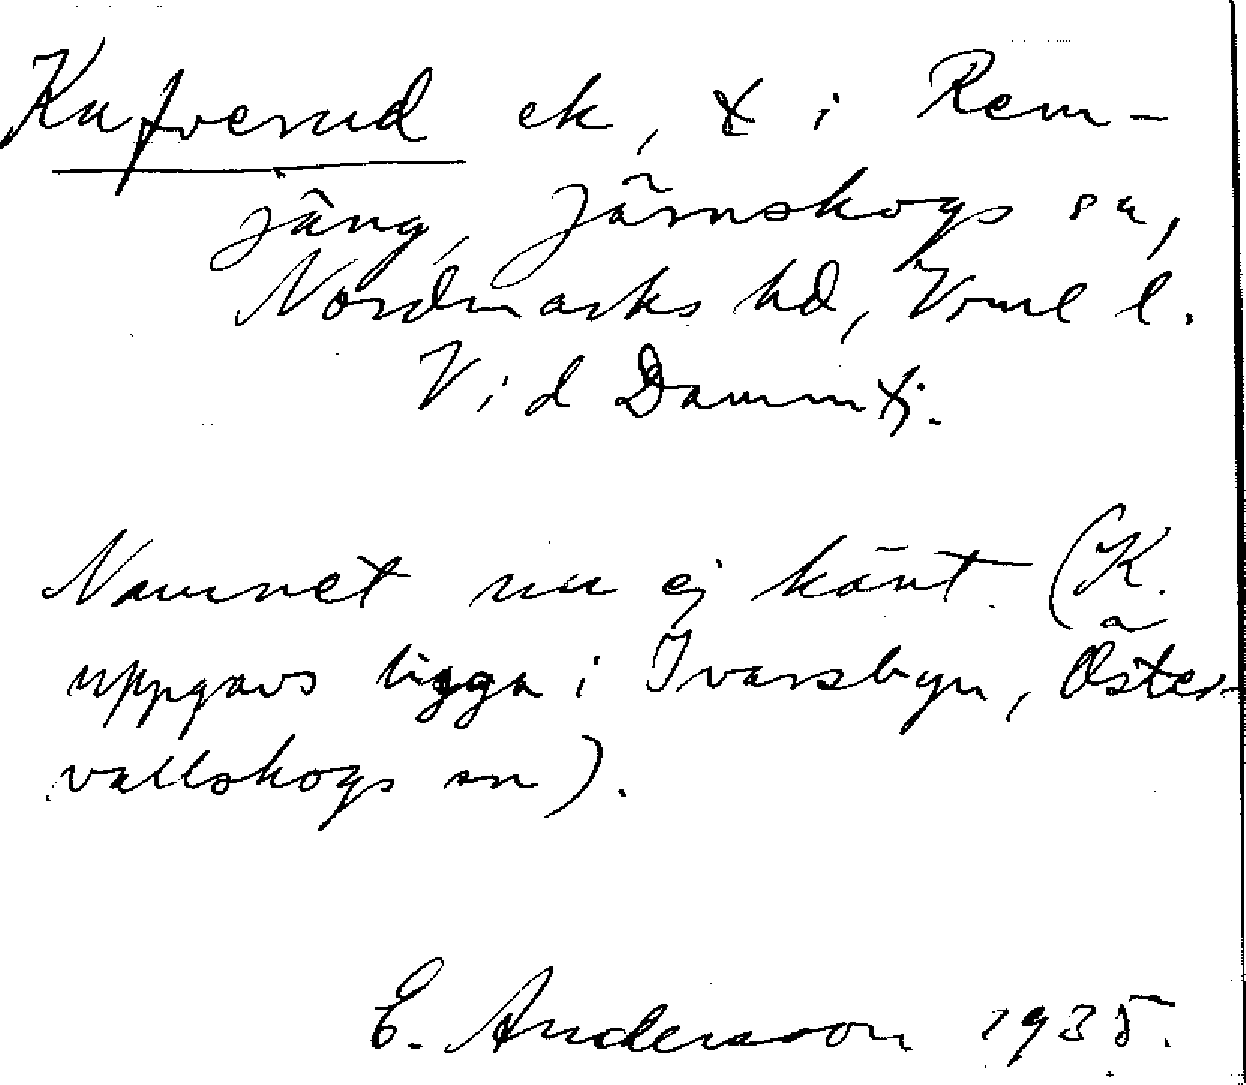 Kufverud ek, x i Rem-
jäng, Järnskogs sn,
Nordmarks hd, Vrml l.
Vid Dammtj.
Namnet nu ej känt. (K.
uppgavs ligga i Ivarsbyn, Öster-
vallskogs sn).
E. Andersson 1935.